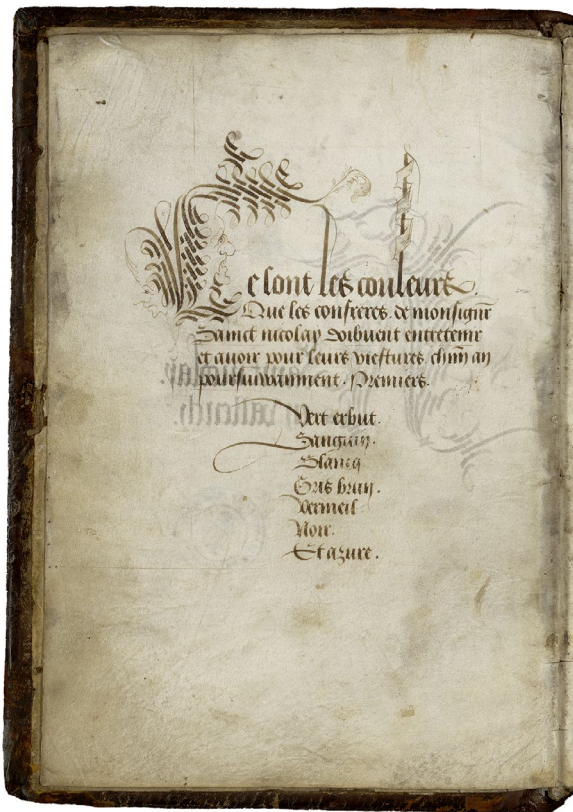 Ce sont les couleurs.
Que les confreres. de monsignr
Sainct nicolay doibuent entretenir
et auoir pour leurs viestures chun an
poursuiuanment. Premiers.
Vert erbut.
Sanguin.
Blancq
Gris brun.
Vermeil
Noir.
Et azure.